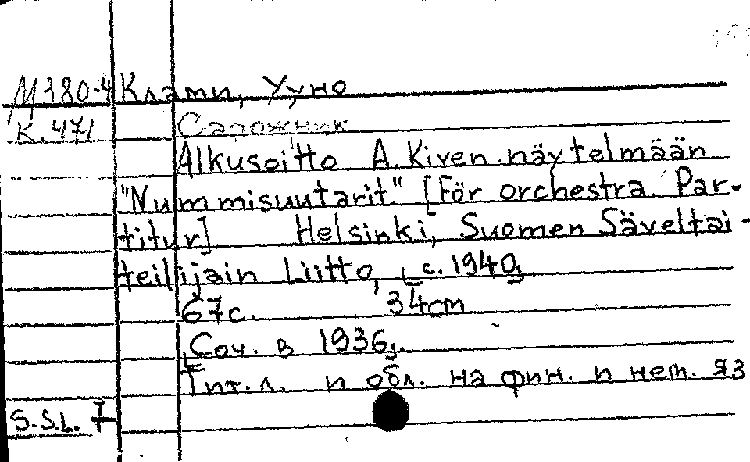 M 180.4 Клами, Ууно
K.471 Сапожник
Alkusoitto A. Kiven näytelmään
"Nummisuutarit" [För orchestra. Par-
titur] Helsinki, Suomen Säveltai-
teilijain Liitto, [c. 1940]
67 с. 34cm
[Соч. в 1936].
Тит. л. и обл. на фин. и нем. яз
S.S.L. I